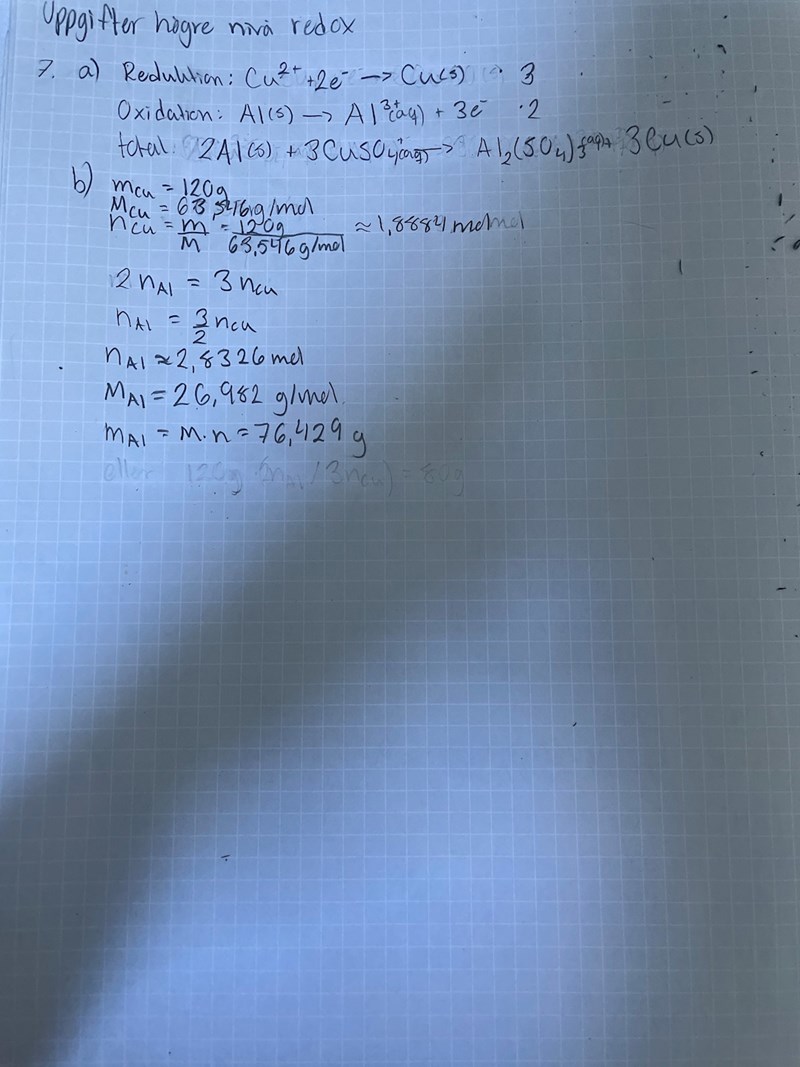 Uppgifter högre nivå redox
7. a) Reduktion: Cu²⁺ + 2e⁻ → Cu(s) · 3
Oxidation: Al(s) → Al³⁺(aq) + 3e⁻ · 2
total: 2Al(s) + 3CuSO₄(aq) → Al₂(SO₄)₃(aq) + 3Cu(s)
b) mCu = 120g
MCu = 63,546g/mol
nCu = m/M = 120g/63,546g/mol ≈ 1,8884 mol
2 nAl = 3 nCu
nAl = 3/2 nCu
nAl ≈ 2,8326 mol
MAl = 26,982 g/mol
mAl = M·n = 76,429 g
eller 120g (nAl / 3nCu) = 80g